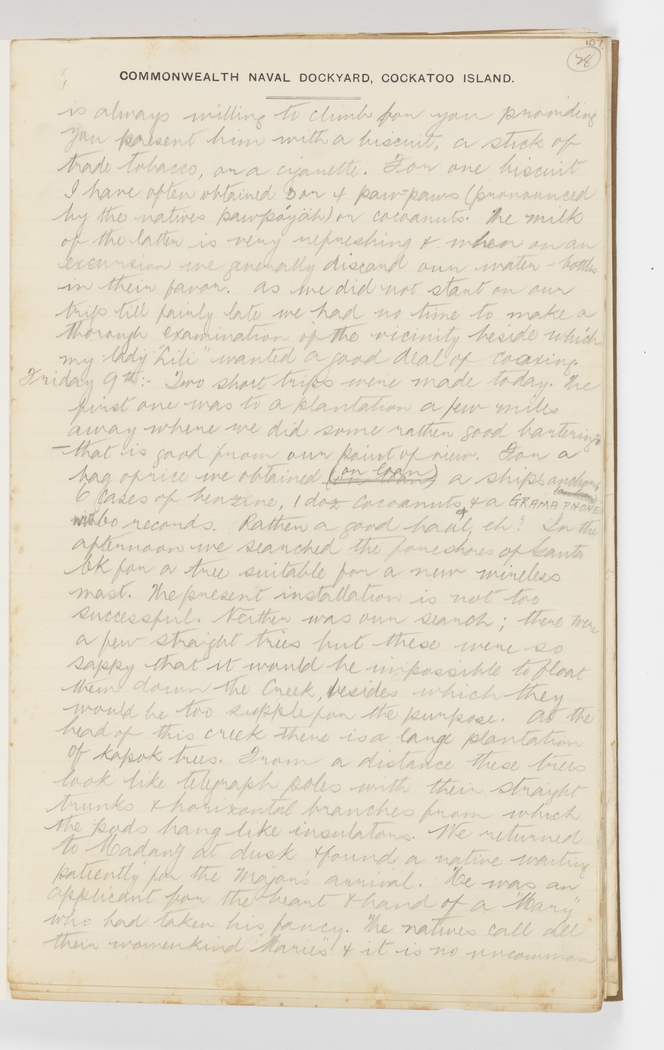 107
28
COMMONWEALTH NAVAL DOCKYARD, COCKATOO ISLAND.
is always willing to climb for you providing
you present him with a biscuit, a stick of
trade tobacco, or a cigarette. For one biscuit
I have often obtained 3 or 4 paw-paws (pronounced
by the natives pawpoyah) or cocoanuts. The milk
of the latter is very refreshing & when on an
excursion we generally discard our water-bottles
in their favor. As we did not start on our
trip till fairly late we had no time to make a
thorough examination of the vicinity beside which
my lady "Lili" wanted a good deal of coaxing.
Friday 9th:- Two short trips were made today. The
first one was to a plantation a few miles
away where we did some rather good bartering
- that is good from our point of view. For a
bag of rice we obtained (on loan) a ship's anchor,
6 cases of benzine, 1 doz cocoanuts, & a GRAMAPHONE
& 60 records. Rather a good haul, eh? In the
afternoon we searched the foreshores of Santa
for a tree suitable for a new wireless
mast. The present installation is not too
successful. Neither was our search; there were
a few straight trees but these were so
sappy that it would be impossible to float
them down the Creek, besides which they
would be too supple for the purpose. At the
head of this creek there is a large plantation
of kapok trees. From a distance these trees
look like telegraph poles with their straight
trunks & horizontal branches from which
the pods hang like insulators. We returned
to Madang at dusk & found a native waiting
patiently for the Major's arrival. He was an
applicant for the heart & hand of a "Mary"
who had taken his fancy. The natives call all
their womenkind "Maries" & it is no uncommon